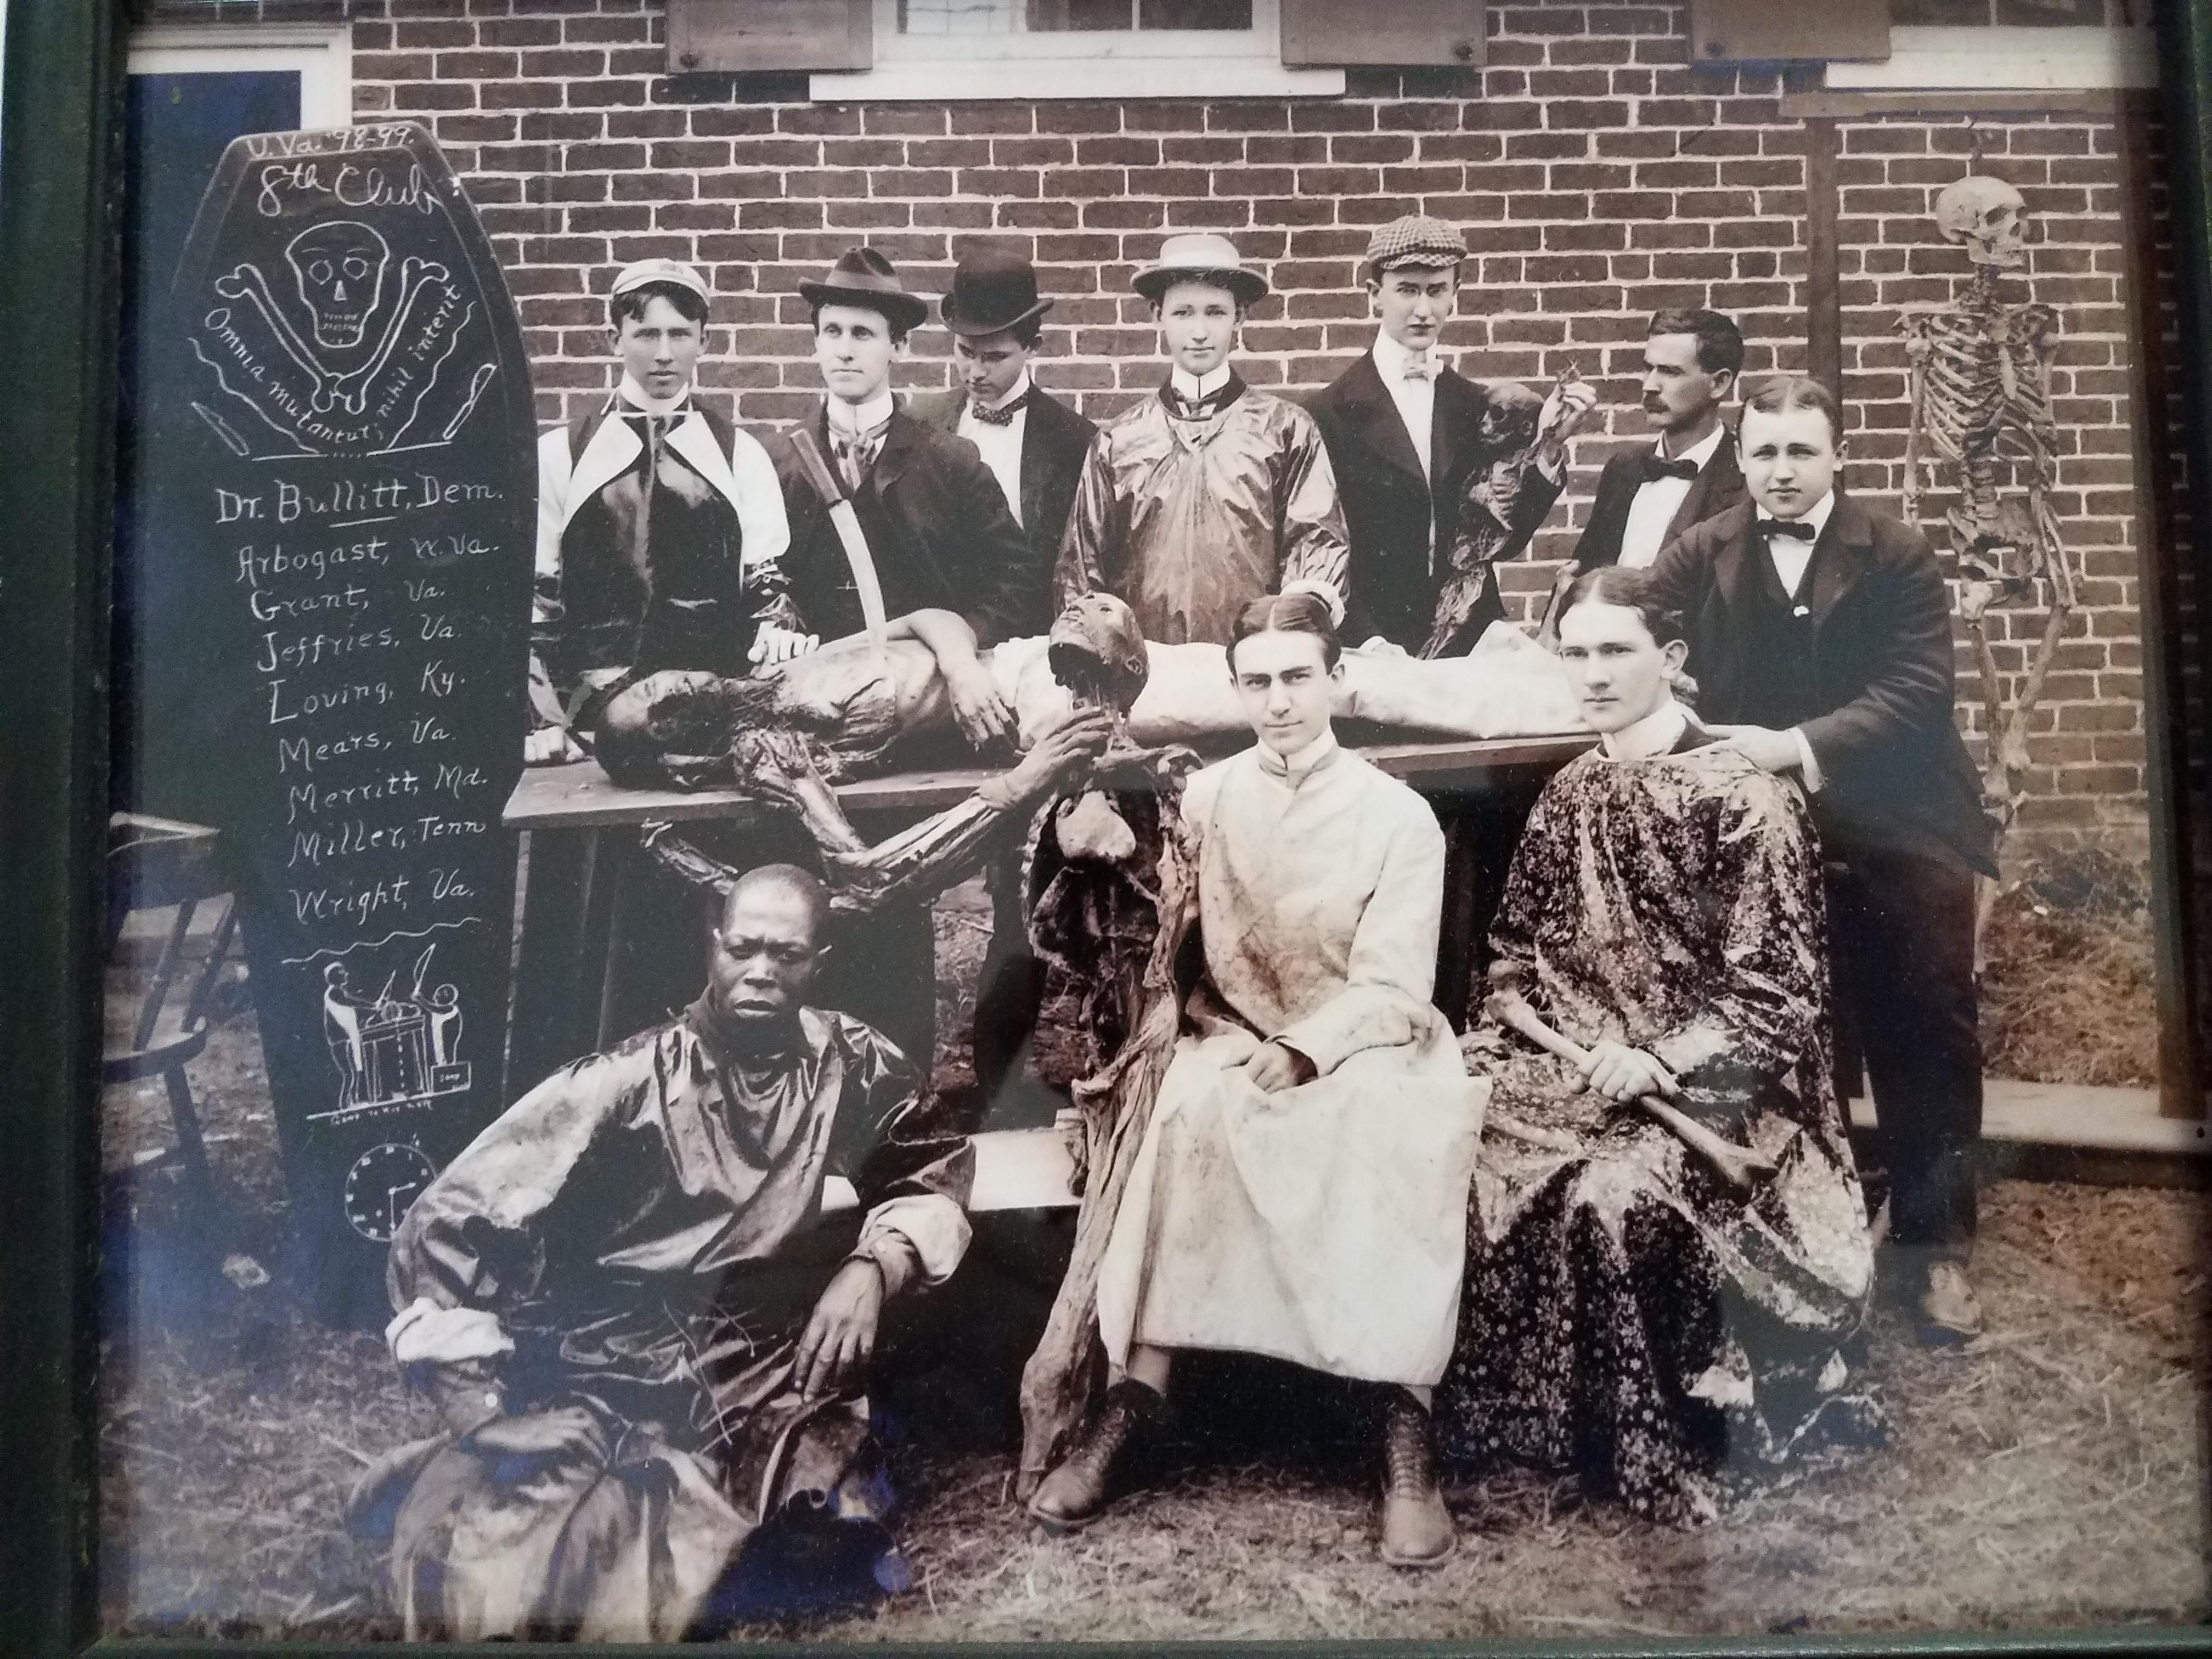 U. Va. '98-99.
8th Club
Omnia mutantur; nihil interit
Dr. Bullitt, Dem.
Arbogast, W. Va.
Grant, Va.
Jeffries, Va.
Loving, Ky.
Mears, Va.
Merritt, Md.
Miller, Tenn
Wright, Va.